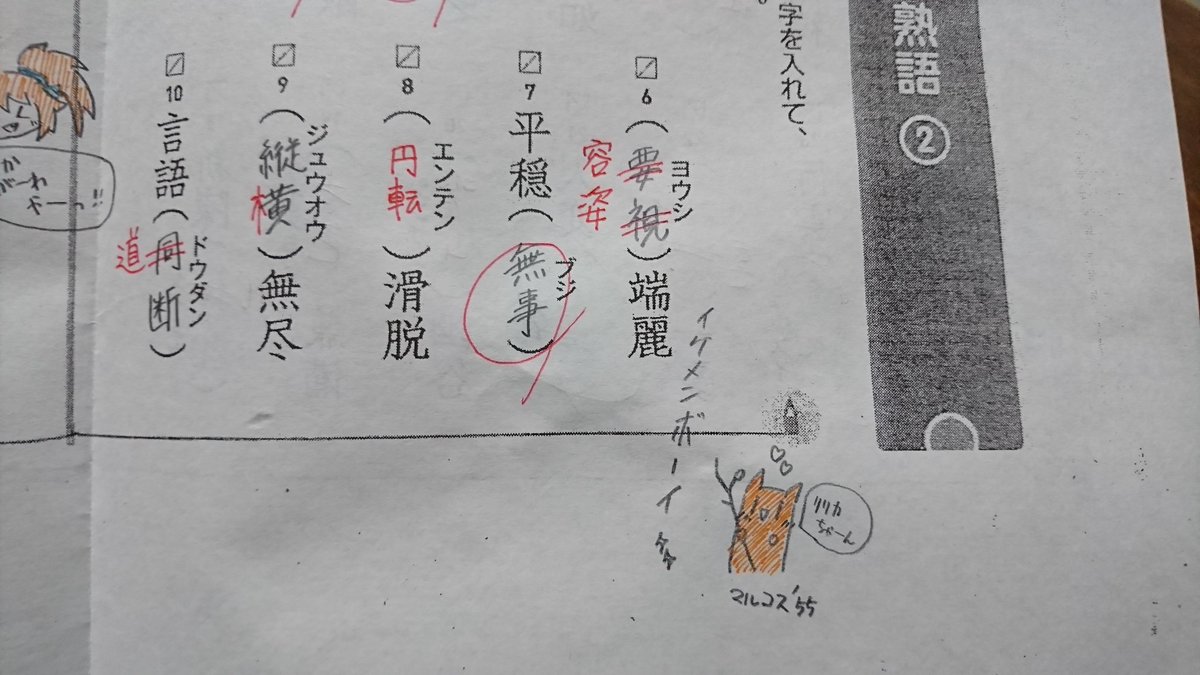 熟語②
字を入れて、
6（要視）端麗
ヨウシ
容姿
7平穏（無事）
ブジ
8（円転）滑脱
エンテン
9（縦横）無尽
ジュウオウ
10言語（断）
ドウダン
道
イケメンボーイ
リリカ
ちゃーん
マルコス'55